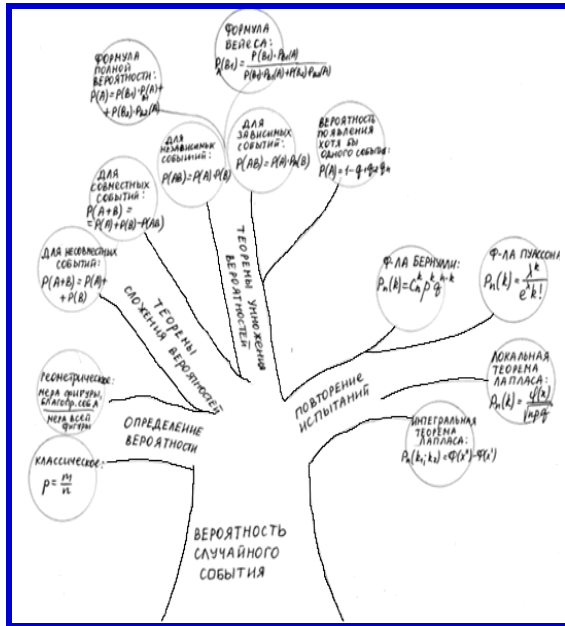 ФОРМУЛА
БЕЙЕСА:
P_A(B₁) = P(B₁)·P_B₁(A) / P(B₁)·P_B₁(A)+P(B₂)·P_B₂(A)
ФОРМУЛА
ПОЛНОЙ
ВЕРОЯТНОСТИ:
P(A)=P(B₁)·P_B₁(A)+
+P(B₂)·P_B₂(A)
ДЛЯ
НЕЗАВИСИМЫХ
СОБЫТИЙ:
P(AB)=P(A)·P(B)
ДЛЯ
ЗАВИСИМЫХ
СОБЫТИЙ:
P(AB)=P(A)·P_A(B)
ВЕРОЯТНОСТЬ
ПОЯВЛЕНИЯ
ХОТЯ БЫ
ОДНОГО СОБЫТИЯ:
P(A)=1-q₁q₂qₙ
ДЛЯ
СОВМЕСТНЫХ
СОБЫТИЙ:
P(A+B)=
=P(A)+P(B)-P(AB)
ДЛЯ НЕСОВМЕСТНЫХ
СОБЫТИЙ:
P(A+B)=P(A)+
+P(B)
ТЕОРЕМЫ
СЛОЖЕНИЯ ВЕРОЯТНОСТЕЙ
ТЕОРЕМЫ УМНОЖЕНИЯ
ВЕРОЯТНОСТЕЙ
Ф-ЛА БЕРНУЛЛИ:
Pₙ(k)=Cₙᵏpᵏqⁿ⁻ᵏ
Ф-ЛА ПУАССОНА
Pₙ(k)=λᵏ/e^λ k!
ЛОКАЛЬНАЯ
ТЕОРЕМА
ЛАПЛАСА:
Pₙ(k)=φ(x)/√npq
ИНТЕГРАЛЬНАЯ
ТЕОРЕМА
ЛАПЛАСА:
Pₙ(k₁;k₂)=Φ(x")-Φ(x')
ПОВТОРЕНИЕ
ИСПЫТАНИЙ
ГЕОМЕТРИЧЕСКОЕ:
МЕРА ФИГУРЫ,
БЛАГОПР. СОБ. А
МЕРА ВСЕЙ
ФИГУРЫ
КЛАССИЧЕСКОЕ:
p=m/n
ОПРЕДЕЛЕНИЕ
ВЕРОЯТНОСТИ
ВЕРОЯТНОСТЬ
СЛУЧАЙНОГО
СОБЫТИЯ